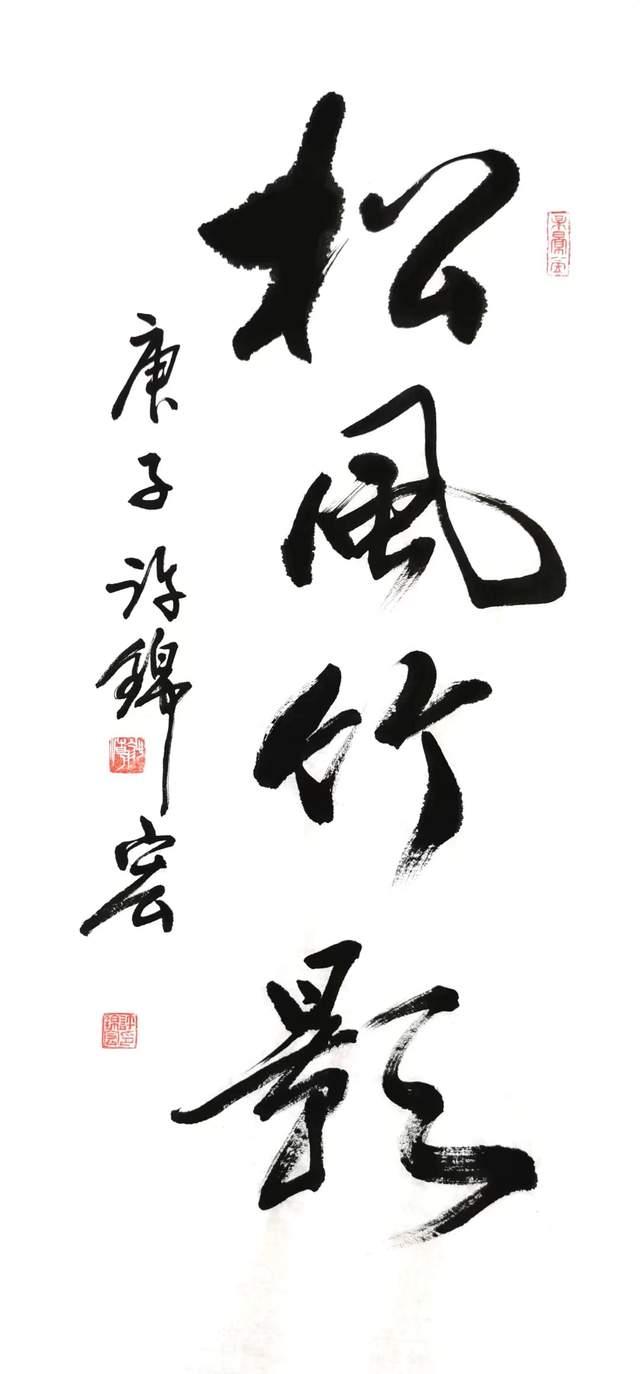 松風竹影
庚子 许錦宏